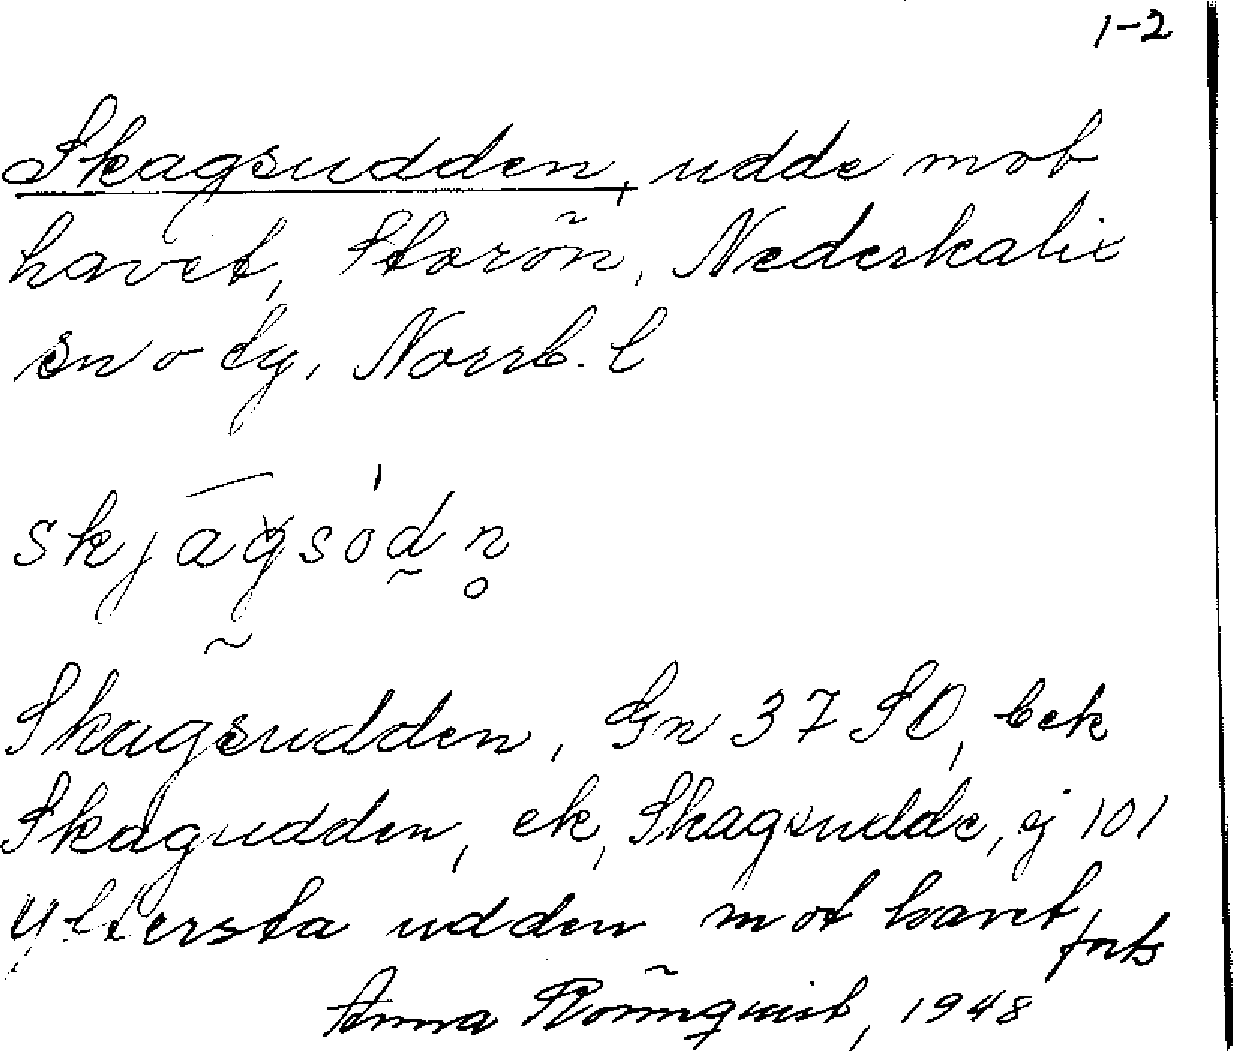 1-2
Skagsudden, udde mot
havet, Storön, Nederkalix
sn o tg, Norrb. l
Skagsudden, Gn 37 SO, bek
Skagudden, ek, Skagsudde, ej 101
Yttersta udden mot havet,
forts
Anna Rönnqvist, 1948